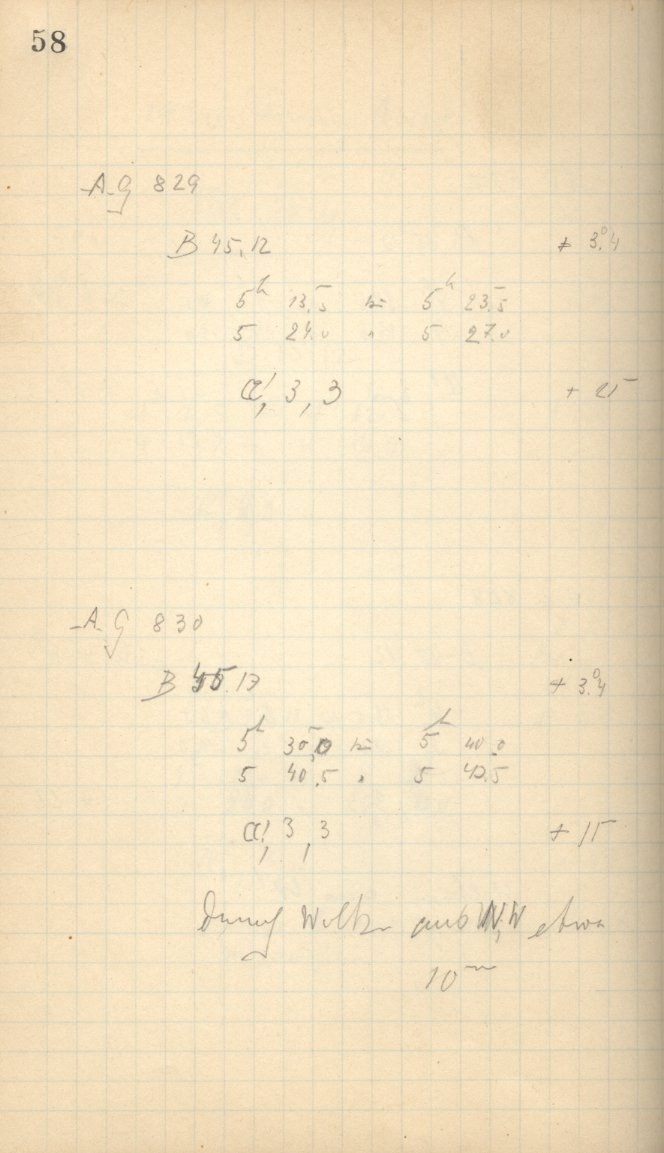 58
A.G 829
B 45.12 + 3°.4
5h 13.5 bis 5h 23.5
5 24.0 " 5 27.0
α', 3, 3 + 25
A.G 830
B 45.13 + 3°.4
5h 30.0 bis 5h 40.0
5 40.5 " 5 43.5
α', 3, 3 + 15
durch Wolken aus N,W etwa
10m